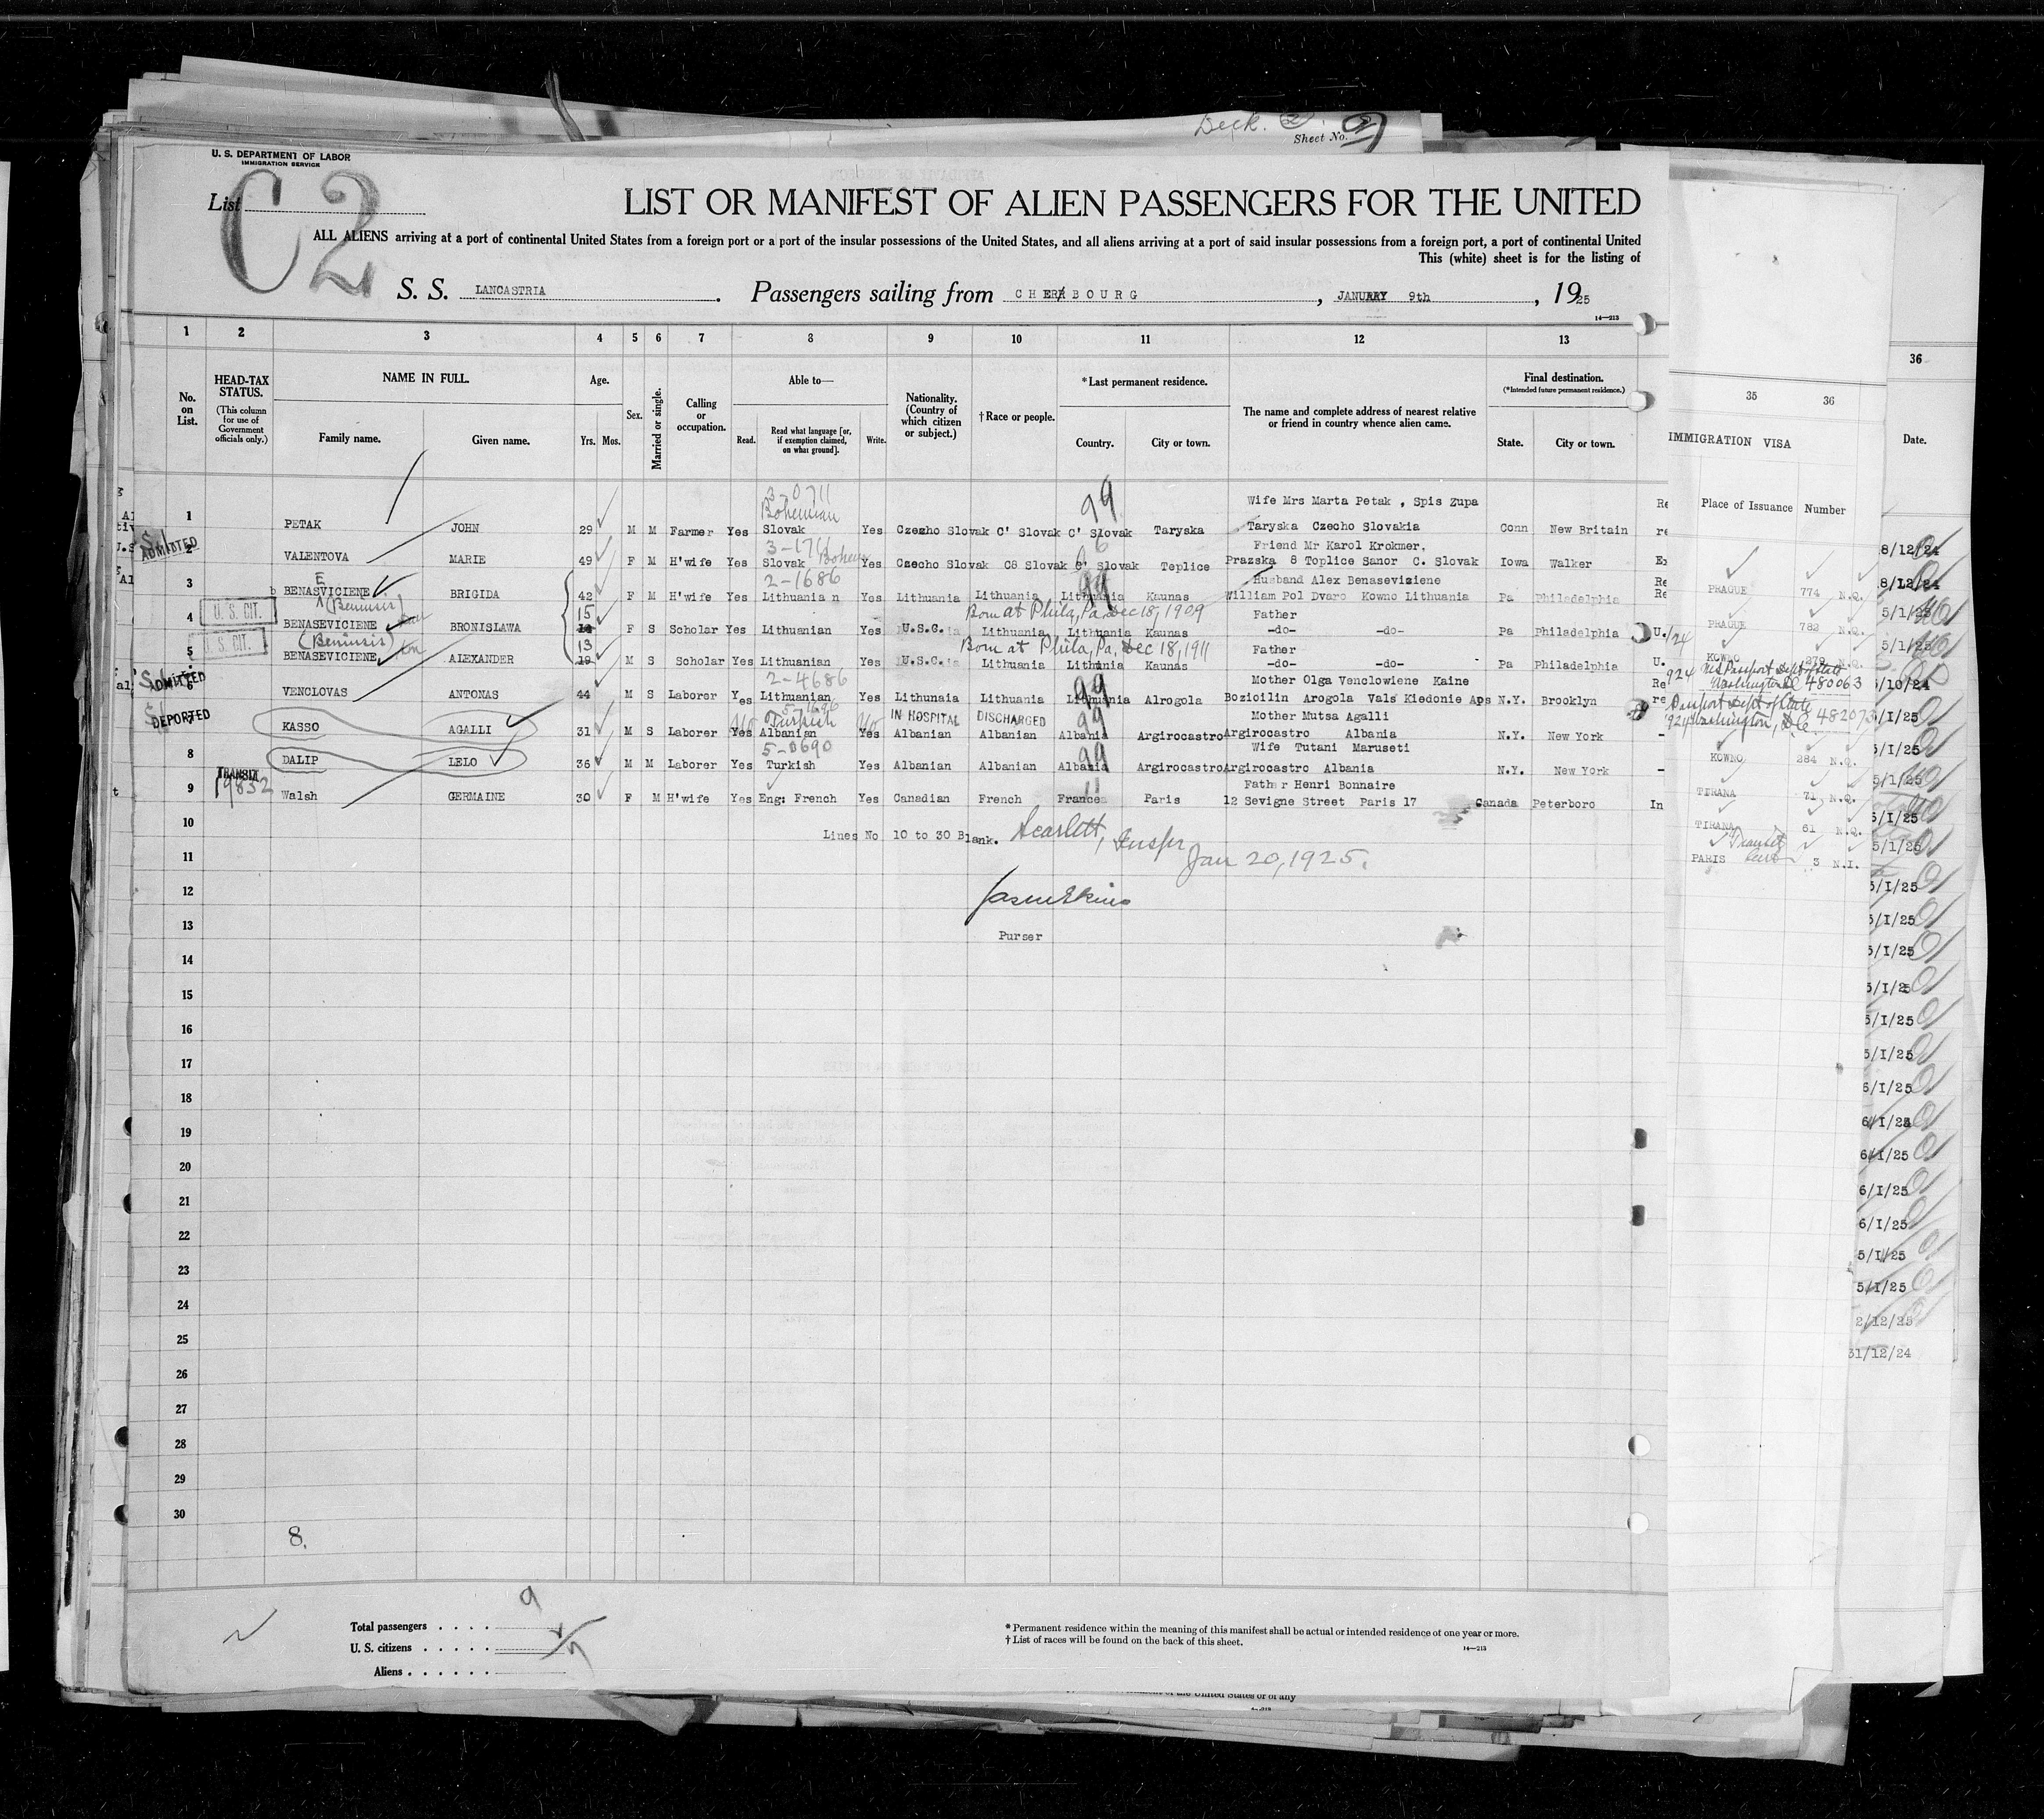 Deck. 2
Sheet No. 2
U. S. DEPARTMENT OF LABOR
IMMIGRATION SERVICE
List
C2
LIST OR MANIFEST OF ALIEN PASSENGERS FOR THE UNITED
ALL ALIENS arriving at a port of continental United States from a foreign port or a port of the insular possessions of the United States, and all aliens arriving at a port of said insular possessions from a foreign port, a port of continental United
This (white) sheet is for the listing of
S. S. LANCASTRIA. Passengers sailing from CHERBOURG, JANUARY 9th, 1925
14—213
1 2 3 4 5 6 7 8 9 10 11 12 13
No. on List.
HEAD-TAX STATUS.
(This column for use of Government officials only.)
NAME IN FULL.
Family name. Given name.
Age.
Yrs. Mos.
Sex.
Married or single.
Calling or occupation.
Able to—
Read. Read what language [or, if exemption claimed, on what ground]. Write.
Nationality. (Country of which citizen or subject.)
†Race or people.
*Last permanent residence.
Country. City or town.
The name and complete address of nearest relative or friend in country whence alien came.
Final destination.
(*Intended future permanent residence.)
State. City or town.
35 36
IMMIGRATION VISA
Place of Issuance Number
36
Date.
3-0711
Bohemian
99
Wife Mrs Marta Petak , Spis Zupa
1 PETAK JOHN 29 M M Farmer Yes Slovak Yes Czecho Slovak C' Slovak C' Slovak Taryska Taryska Czecho Slovakia Conn New Britain
ADMITTED
3-1711
Friend Mr Karol Krokmer,
2 VALENTOVA MARIE 49 F M H'wife Yes Slovak Yes Czecho Slovak C8 Slovak C' Slovak Teplice Prazska 8 Toplice Sanor C. Slovak Iowa Walker
E
2-1686
99
Husband Alex Benaseviziene
3 b BENASVICIENE BRIGIDA 42 F M H'wife Yes Lithuania n Yes Lithuania Lithuania Lithuania Kaunas William Pol Dvaro Kowno Lithuania Pa Philadelphia
U. S. CIT.
(Beniusis)
15
Born at Phila, Pa, Dec 18, 1909
Father
4 BENASEVICIENE BRONISLAWA F S Scholar Yes Lithuanian Yes U.S.C. Lithuania Lithuania Kaunas -do- -do- Pa Philadelphia
U. S. CIT.
(Beniusis)
13
Born at Phila, Pa, Dec 18, 1911
Father
5 BENASEVICIENE ALEXANDER M S Scholar Yes Lithuanian Yes U.S.C. Lithuania Lithuania Kaunas -do- -do- Pa Philadelphia
ADMITTED
2-4686
99
Mother Olga Venclowiene Kaine
6 VENCLOVAS ANTONAS 44 M S Laborer Yes Lithuanian Yes Lithunaia Lithuania Lithuania Alrogola Bozioilin Arogola Vals Kiedonie Aps N.Y. Brooklyn
DEPORTED
Turkish
IN HOSPITAL DISCHARGED
99
Mother Mutsa Agalli
7 KASSO AGALLI 31 M S Laborer Yes Albanian Yes Albanian Albanian Albania Argirocastro Argirocastro Albania N.Y. New York
5-8690
99
Wife Tutani Maruseti
8 DALIP LELO 36 M M Laborer Yes Turkish Yes Albanian Albanian Albania Argirocastro Argirocastro Albania N.Y. New York
TRANSIT
19832
Father Henri Bonnaire
9 Walsh GERMAINE 30 F M H'wife Yes Eng: French Yes Canadian French France Paris 12 Sevigne Street Paris 17 Canada Peterboro In
10
Lines No 10 to 30 Blank. Scarlett, Inspr
Jan 20, 1925.
11
12
13
Purser
14
15
16
17
18
19
20
21
22
23
24
25
26
27
28
29
30
8.
PRAGUE 774 N.Q.
PRAGUE 782 N.Q.
KOWNO 279 N.Q.
US Passport Dept of State
Washington DC 480063
Passport Dept of State
Washington, D.C. 482073
KOWNO 284 N.Q.
TIRANA 71 N.Q.
TIRANA 61 N.Q.
Transit
PARIS 3 N.I.
8/12/24
8/12/24
5/1/25
5/1/25
/10/24
/1/25
5/1/25
5/1/25
5/1/25
5/1/25
5/I/25
5/I/25
5/I/25
5/I/25
5/I/25
5/I/25
6/I/25
6/I/25
6/I/25
6/I/25
6/I/25
5/I/25
5/I/25
2/12/25
31/12/24
Total passengers . . . . 9
U. S. citizens . . . . . 2
Aliens . . . . . . 7
* Permanent residence within the meaning of this manifest shall be actual or intended residence of one year or more.
† List of races will be found on the back of this sheet.
14—213
of the United States or of any